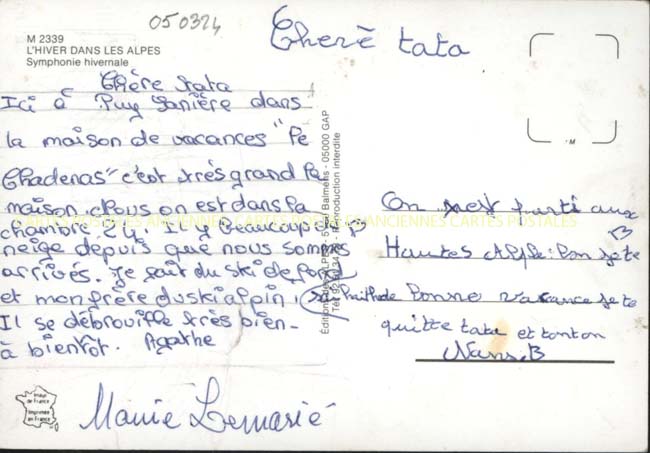 050324
M 2339
L'HIVER DANS LES ALPES
Symphonie hivernale
Cherè tata
Chère tata
Ici à Puy Sanière dans
la maison de vacances "le
Chadenas" c'est très grand la
maison. Nous on est dans la
chambre Il y beaucoup de
neige depuis que nous sommes
arrivés. Je fait du ski de fond
et mon frère du ski alpin,
Il se débrouille très bien.
à bientôt. Agathe
Mamie Lemarié
Editions des ALPES - 5 Balmens - 05000 GAP
Reproduction interdite
On est parti aux
Hautes Alpe:
Bonne vacance je te
quitte tata et tonton
Nans.B
CARTES POSTALES ANCIENNES CARTES POSTALES ANCIENNES CARTES POSTALES
Image de France
Imprimée en France
M